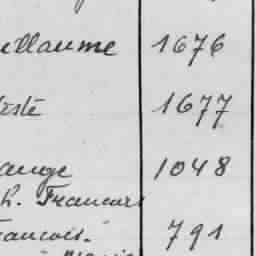 uillaume 1676
1677
ange 1048
h. Francois
rancois. 791